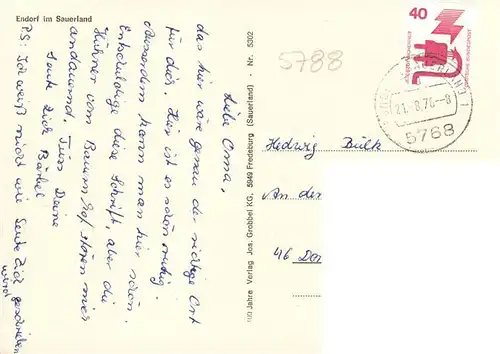 Endorf im Sauerland
Liebe Oma,
das hier wäre genau der richtige Ort
für dich. Hier ist es schön ruhig.
Ausserdem kann man hier schön.
Entschuldige diese Schrift, aber die
Hühner vom Bauern stören mich
andauernd. Tüss Deine
Heute Dich Bärbel
PS: Ich weiß nicht wie Heute Dich geschrieben
wird
100 Jahre Verlag Jos. Grobbel KG, 5949 Fredeburg (Sauerland) - Nr. 5302
5788
40
DEUTSCHE BUNDESPOST
21.-8.76.-8
5768
Hedwig Bulk
An der
46 Dor